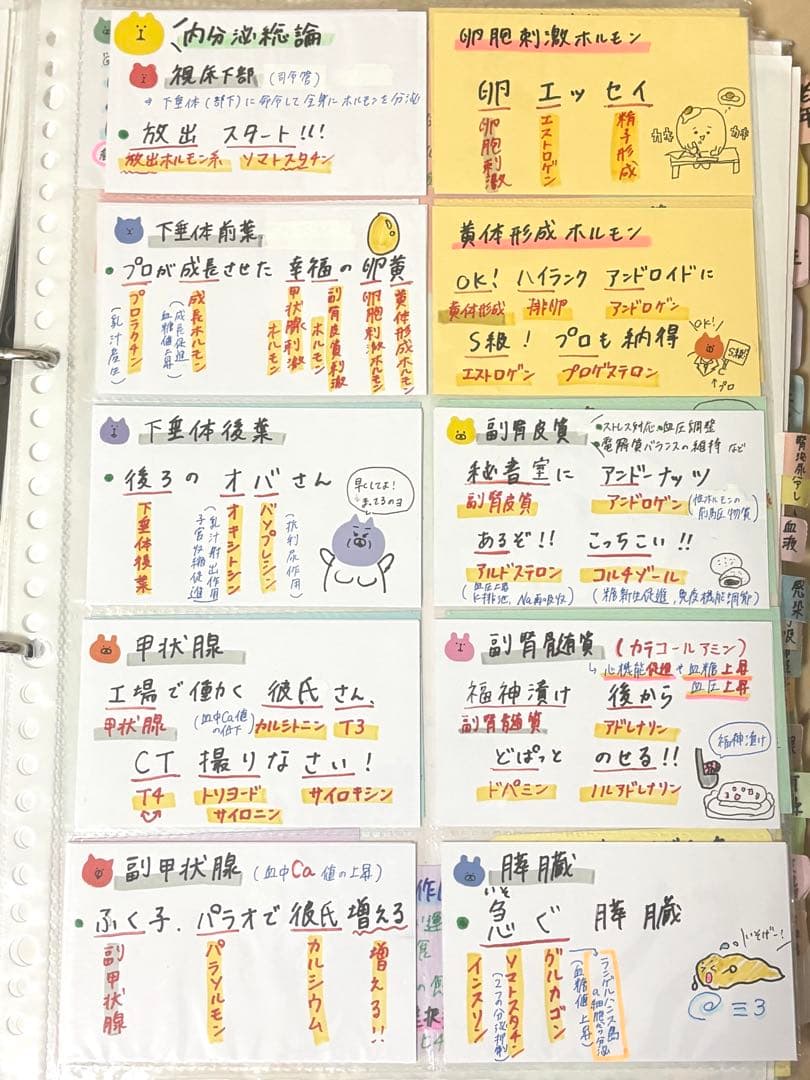 内分泌総論
視床下部（司令官）
⇒ 下垂体(部下)に命令して全身にホルモンを分泌
放出 スタート!!!
放出ホルモン系 ソマトスタチン
卵胞刺激ホルモン
卵 エッセイ
卵胞刺激
エストロゲン
精子形成
カキ
カキ
下垂体前葉
プロが成長させた 幸福の卵黄
プロラクチン
(乳汁産生)
成長ホルモン
(成長促進 血糖値上昇)
甲状腺刺激ホルモン
副腎皮質刺激ホルモン
卵胞刺激ホルモン
黄体形成ホルモン
黄体形成ホルモン
OK! ハイランク アンドロイドに
黄体形成 排卵 アンドロゲン
S級! プロも納得
エストロゲン プロゲステロン
OK!
S級!
↑プロ
下垂体後葉
後ろの オバさん
下垂体後葉
オキシトシン
(乳汁射出作用 子宮収縮促進)
バソプレシン
(抗利尿作用)
早くしてよ!
まってるのヨ
副腎皮質
・ストレス対応・血圧調整
・電解質バランスの維持 など
秘書室に アンドーナッツ
副腎皮質 アンドロゲン(性ホルモンの前駆物質)
あるぞ!! こっちこい!!
アルドステロン コルチゾール
(血圧上昇 K排泄、Na再吸収)
(糖新生促進、免疫機能調節)
甲状腺
工場で働く 彼氏さん、
甲状腺 (血中Ca値の低下) カルシトニン T3
CT 撮りなさい!
T4 トリヨードサイロニン サイロキシン
副腎髄質 (カラコールアミン)
↳心機能促進や血糖上昇
血圧上昇
福神漬け 後から
副腎髄質 アドレナリン
どぱっと のせる!!
ドパミン ノルアドレナリン
福神漬け
副甲状腺 (血中Ca値の上昇)
ふく子、パラオで彼氏増える
副甲状腺
パラソルモン
カルシウム
増える!!
膵臓
いそ
急ぐ 膵臓
インスリン
ソマトスタチン
(2つの分泌抑制)
グルカゴン
(血糖値上昇)
ランゲルハンス島α細胞から分泌
いそげー!
腎泌尿分し
血液